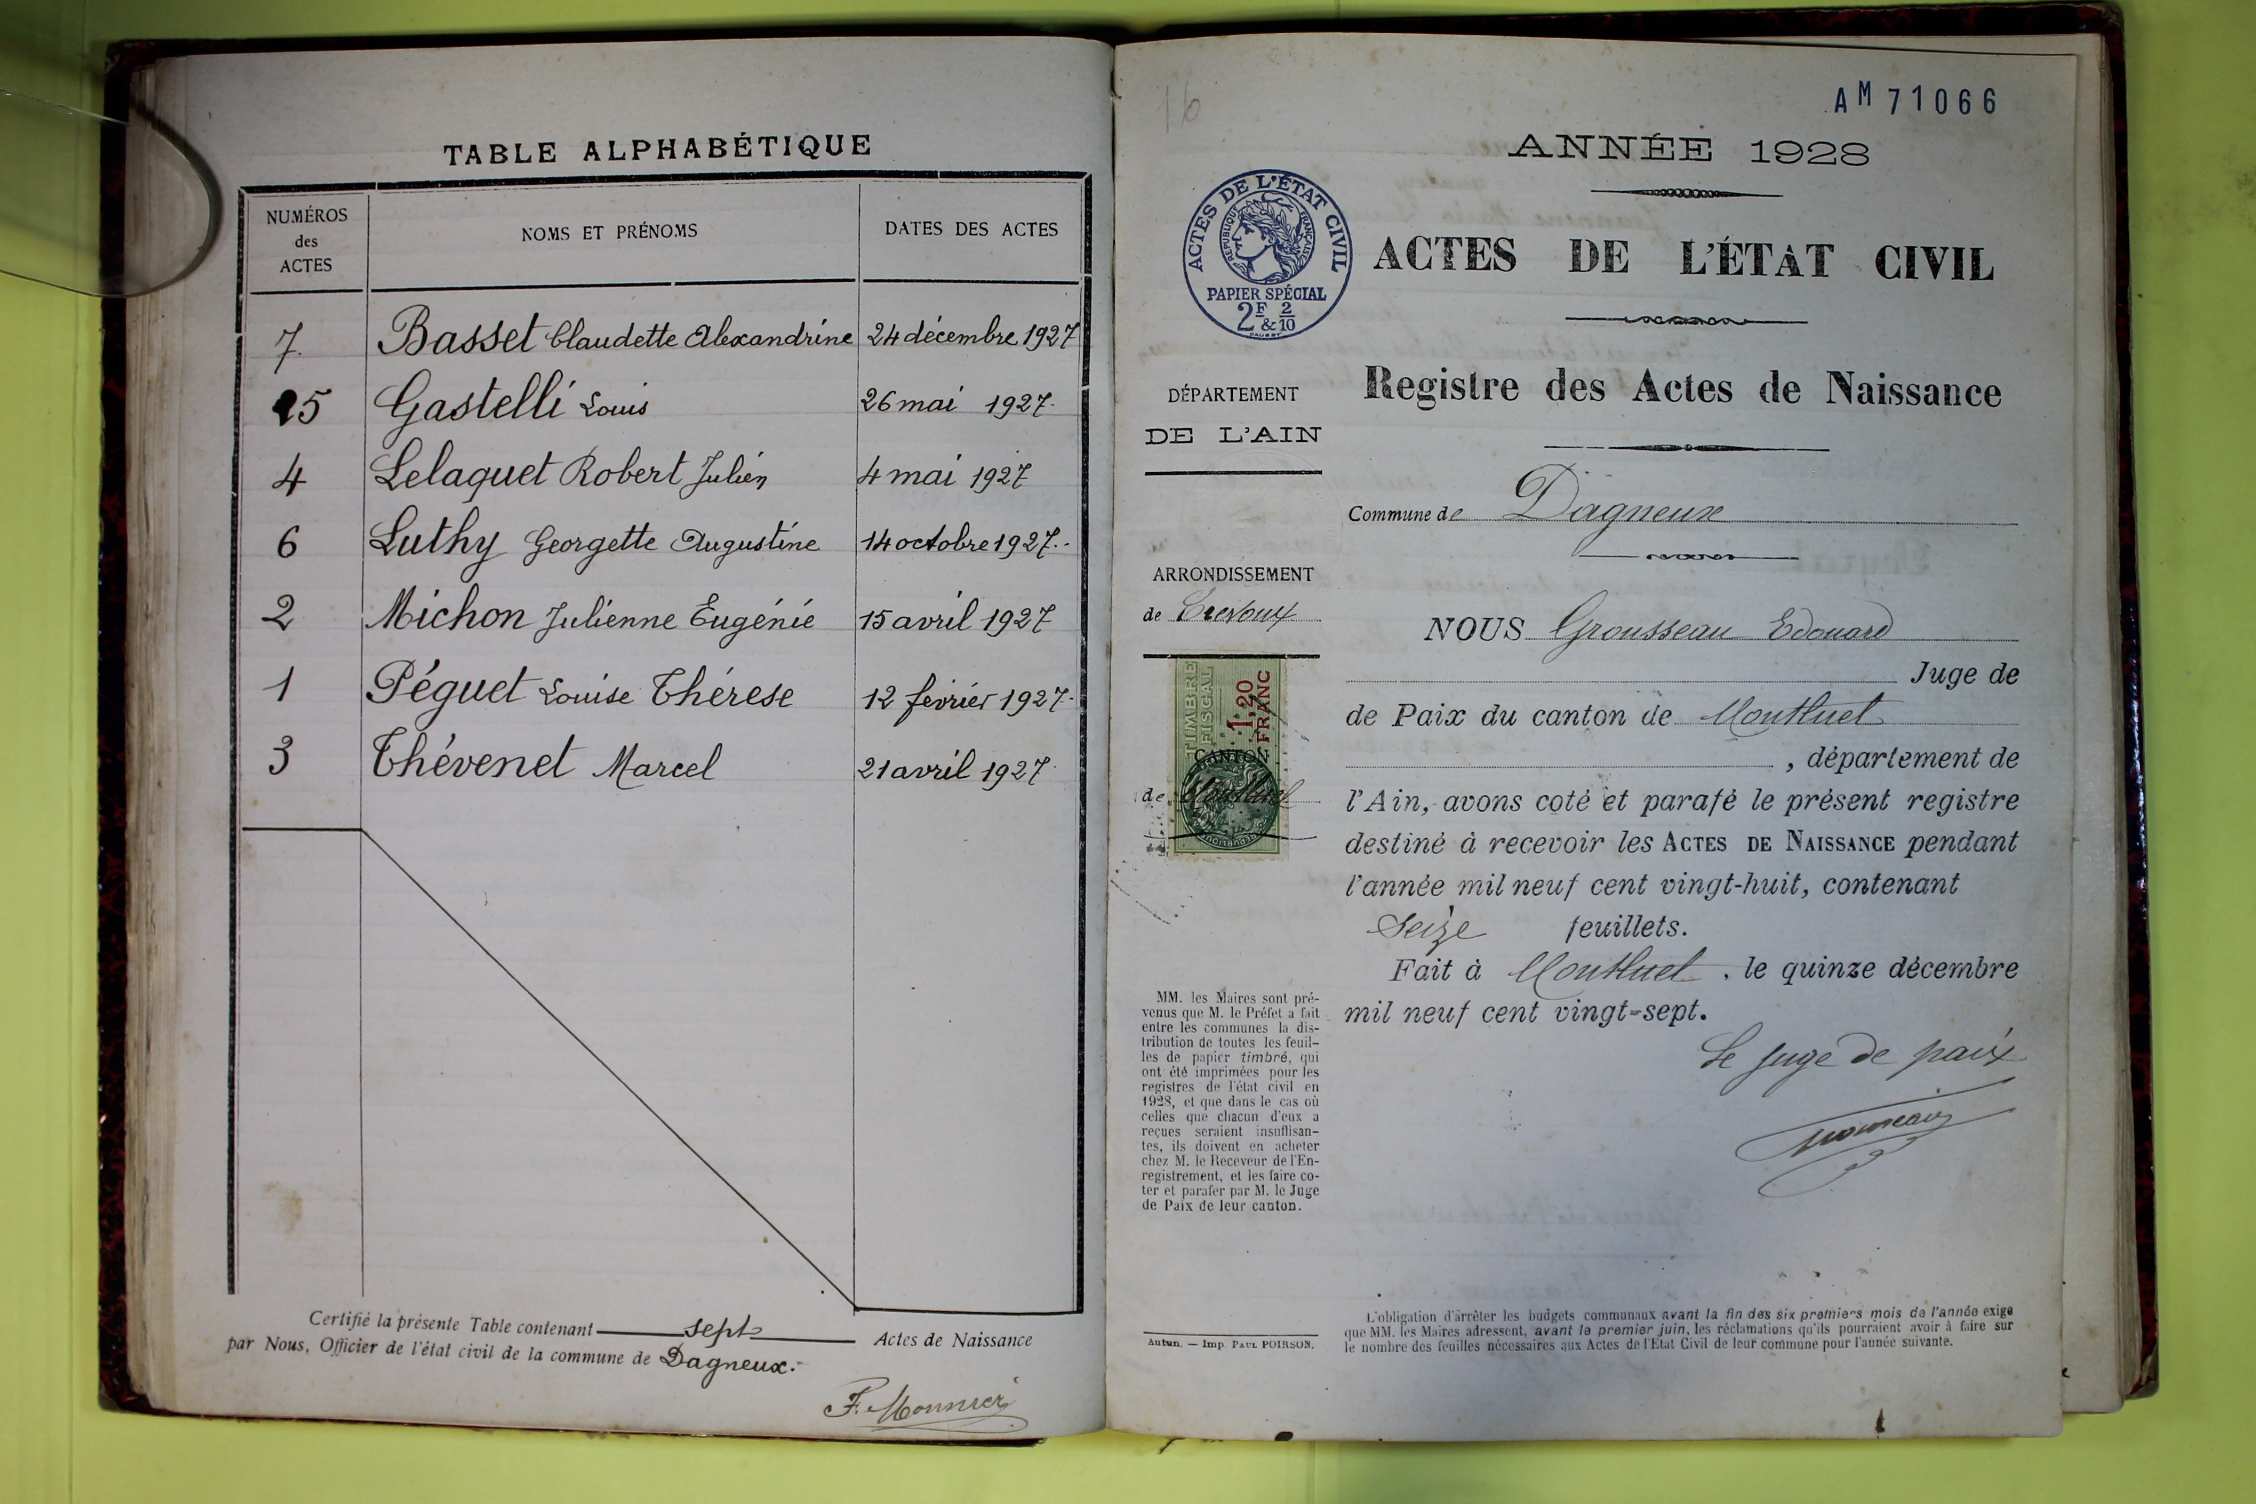 TABLE ALPHABÉTIQUE
NUMÉROS
des
ACTES
NOMS ET PRÉNOMS
DATES DES ACTES
7. Basset Claudette Alexandrine 24 décembre 1927
5 Gastelli Louis 26 mai 1927.
4 Lelaquet Robert Julien 4 mai 1927
6 Luthy Georgette Augustine 14 octobre 1927.-
2 Michon Julienne Eugénie 15 avril 1927
1 Péguet Louise Thérese 12 février 1927.
3 Thévenet Marcel 21 avril 1927.
Certifié la présente Table contenant sept Actes de Naissance
par Nous, Officier de l'état civil de la commune de Dagneux.-
F. Monnier
16
AM 71066
ANNÉE 1928
ACTES DE L'ÉTAT CIVIL
RÉPUBLIQUE FRANÇAISE
PAPIER SPÉCIAL
2F & 2/10
ACTES DE L'ÉTAT CIVIL
Registre des Actes de Naissance
DÉPARTEMENT
DE L'AIN
Commune de Dagneux
ARRONDISSEMENT
de Trévoux
TIMBRE
FISCAL
1,20
FRANC
CANTON
de Montluel
NOUS Grousseau Edouard
Juge de
de Paix du canton de Montluel
, département de
l'Ain, avons coté et parafé le présent registre
destiné à recevoir les ACTES DE NAISSANCE pendant
l'année mil neuf cent vingt-huit, contenant
Seize feuillets.
Fait à Montluel, le quinze décembre
mil neuf cent vingt-sept.
Le Juge de paix
Grousseau
MM. les Maires sont pré-
venus que M. le Préfet a fait
entre les communes la dis-
tribution de toutes les feuil-
les de papier timbré, qui
ont été imprimées pour les
registres de l'état civil en
1928, et que dans le cas où
celles que chacun d'eux a
reçues seraient insuffisan-
tes, ils doivent en acheter
chez M. le Receveur de l'En-
registrement, et les faire co-
ter et parafer par M. le Juge
de Paix de leur canton.
Autun. — Imp. PAUL POIRSON.
L'obligation d'arrêter les budgets communaux avant la fin des six premiers mois de l'année exige
que MM. les Maires adressent, avant le premier juin, les réclamations qu'ils pourraient avoir à faire sur
le nombre des feuilles nécessaires aux Actes de l'Etat Civil de leur commune pour l'année suivante.